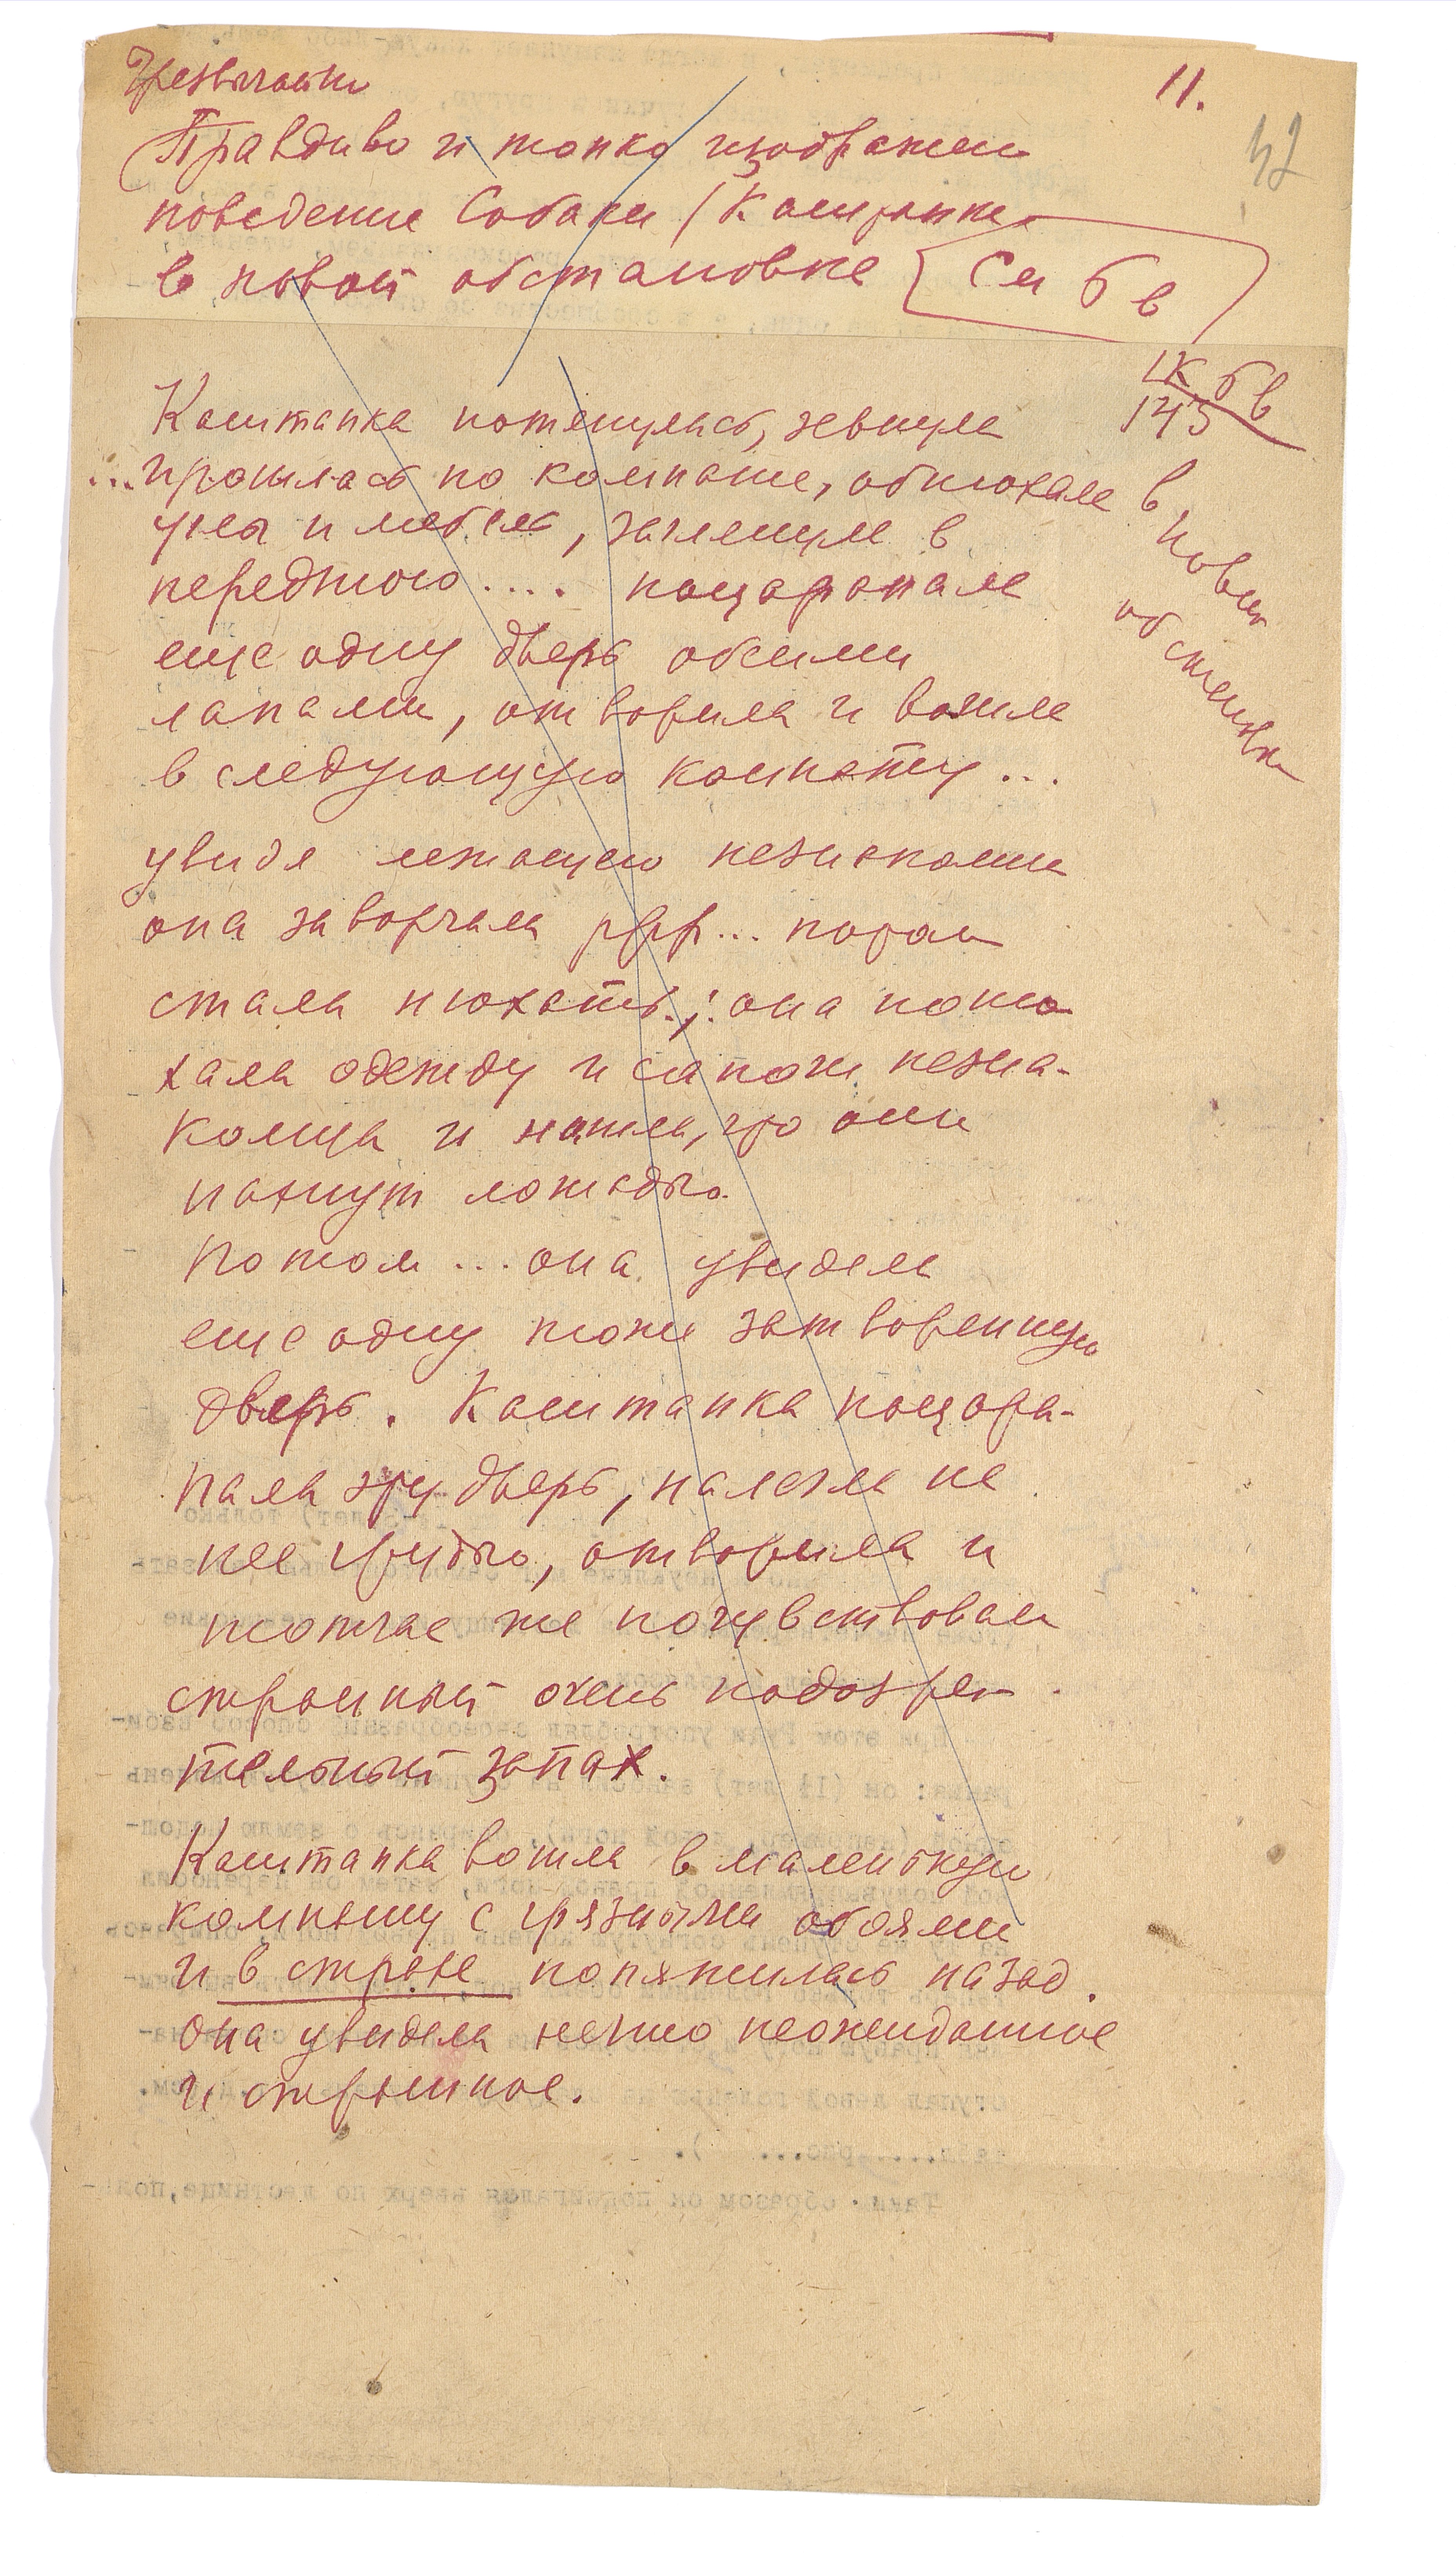 Чрезвычайно 11.
Правдиво и тонко изображено 42
поведение Собаки / Каштанки
в новой обстановке См б в
1К б в
143
Каштанка потянулась, зевнула
...прошлась по комнате, обнюхала
углы и мебель, заглянула в
переднюю.... поцарапала
еще одну дверь обеими
лапами, отворила и вошла
в следующую комнату...
в новой
обстановке
увидя лежащего незнакомца
она заворчала ррр... потом
стала нюхать.; она поню
хала одежду и сапоги незна-
комца и нашла, что они
пахнут лошадью.
Потом ... она увидела
еще одну тоже затворенную
дверь. Каштанка поцара-
пала эту дверь, налегла на
нее грудью, отворила и
тотчас же почувствовала
странный очень подозри
тельный запах.
Каштанка вошла в маленькую
комнату с грязными обоями
и в страхе попятилась назад.
Она увидела нечто неожиданное
и страшное.